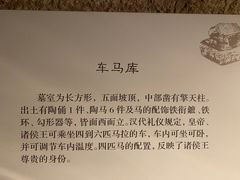 车马库
墓室为长方形，五面坡顶，中部凿有擎天柱。
出土有陶俑1件、陶马6件及马的配饰铁衔镳、铁
环、勾形器等，皆面西而立。汉代礼仪规定，皇帝、
诸侯王可乘坐四到六匹马拉的车，车内可坐可卧，
并可调节车内温度。四匹马的配置，反映了诸侯王
尊贵的身份。